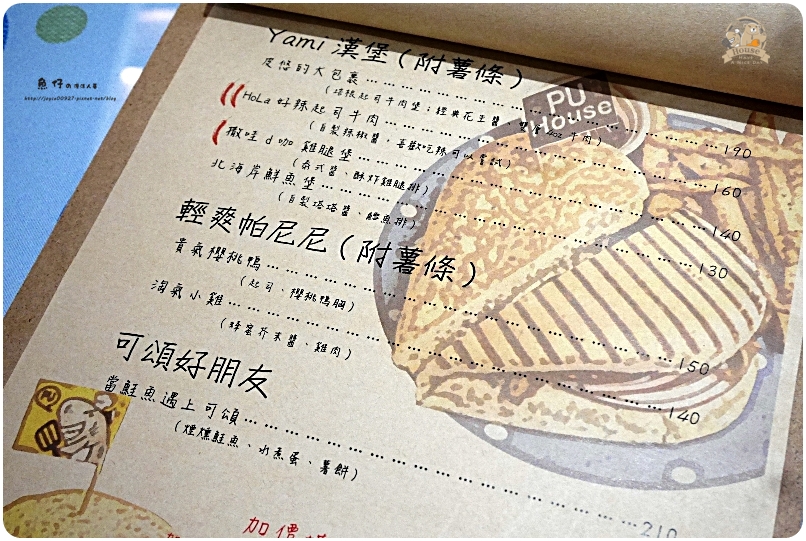 魚仔
http://joyce00927.pixnet.net/blog
House
Yami 漢堡(附薯條)
皮悠的大包裹 190
(培根起司牛肉堡;經典花生醬,雙層4oz牛肉)
PU House
HoLa 好辣起司牛肉 160
(自製辣椒醬,喜歡吃辣可以嘗試)
撒哇d咖 雞腿堡 140
(泰式醬、酥炸雞腿排)
北海岸鮮魚堡 130
(自製塔塔醬、鱈魚排)
輕爽帕尼尼(附薯條)
貴氣櫻桃鴨 150
(起司、櫻桃鴨胸)
淘氣小雞 140
(蜂蜜芥末醬、雞肉)
可頌好朋友
當鮭魚遇上可頌 210
(煙燻鮭魚、水煮蛋、薯餅)
PU
加價